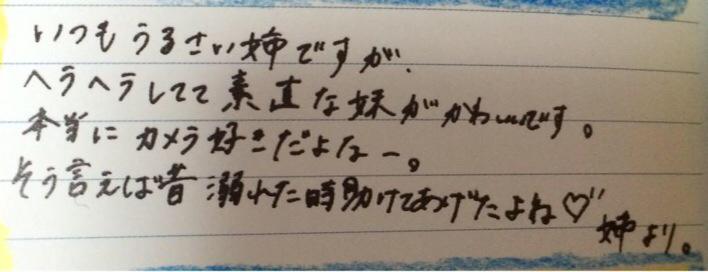 いつもうるさい姉ですが、
ヘラヘラしてて素直な妹がかわいいです。
本当にカメラ好きだよなー。
そう言えば昔溺れた時助けてあげたよね♡"
姉より。